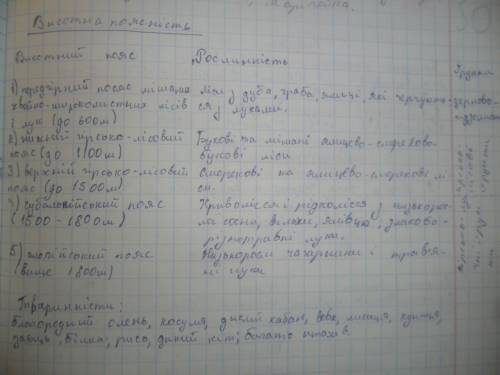 Висотна поясність
Висотний пояс Рослинність
1) передгірний пояс мішаних ліси з дуба, граба, ялиці, які чергують-
хвойно-широколистних лісів ся з луками.
і лук (до 600м)
2) нижній гірсько-лісовий Букові та мішані ялицево-смереково-
пояс (до 1100м) букові ліси
3) верхній гірсько-лісовий Смерекові та ялицево-смерекові лі-
пояс (до 1500м) си.
4) субальпійський пояс Криволісся і рідколісся з низькорос-
(1500-1800м) ла сосна, вільхи, ялівцю; злаково-
різнотравні луки.
5) альпійський пояс Низькорослі чагарники і трав'я-
(вище 1800м) ні луки
Грунти
дерново-
Тваринність:
благородний олень, косуля, дикий кабан, вовк, лисиця, куниця,
заєць, білка, рись, дикий кіт; багато птахів.